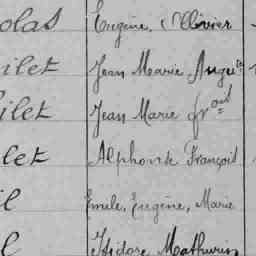 olas Eugène, Ollivier
ilet Jean Marie Augu^te
ilet Jean Marie fr^ois
let Alphonse François
l Emile, Eugène, Marie
l Isidore Mathurin